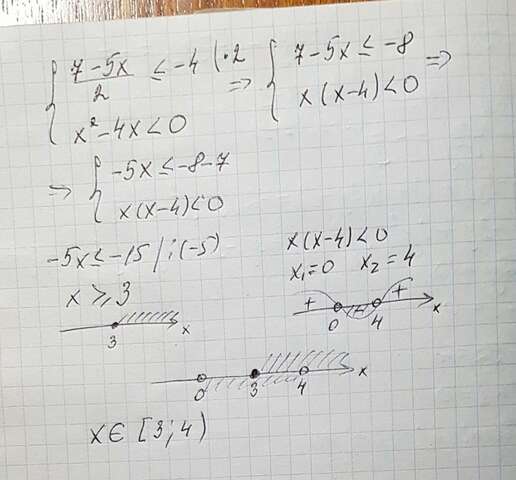 { (7-5x)/2 ≤ -4 |·2 ⇒ { 7-5x ≤ -8 ⇒
x²-4x<0 x(x-4)<0
⇒ { -5x ≤ -8-7
x(x-4)<0
-5x ≤ -15 / :(-5)
x ≥ 3
3 x
x(x-4)<0
x₁=0 x₂=4
+ - +
0 4 x
0 3 4 x
x ∈ [3; 4)